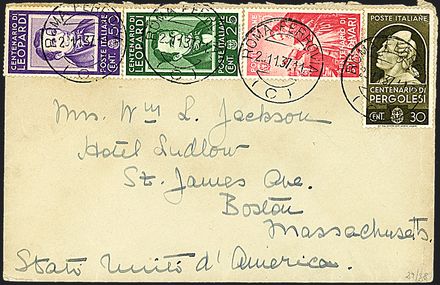 CENTENARIO DI LEOPARDI
POSTE ITALIANE
CENT. 50
CENTENARIO DI LEOPARDI
POSTE ITALIANE
CENT. 25
ROMA FERROVIA
2.11.37.11
(C)
POSTE ITALIANE
CENTENARIO DI PERGOLESI
CENT. 30
Mrs. Wm L. Jackson
Hotel Ludlow
St. James Ave.
Boston
Massachusetts.
Stato Unito d'America.